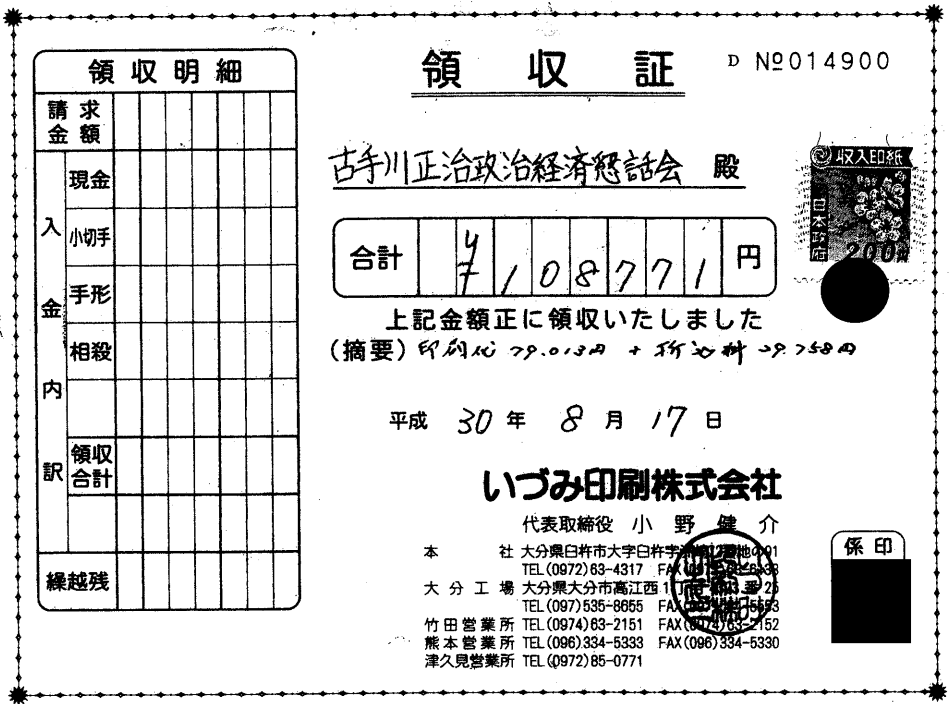 領収証
D №014900
領収明細
請求金額
入金内訳
現金
小切手
手形
相殺
領収合計
繰越残
古手川正治政治経済懇話会 殿
収入印紙
日本政府
200円
合計 ¥108771 円
上記金額正に領収いたしました
(摘要) 印刷代 79.013円 + 折込料 29.758円
平成 30年 8月 17日
いづみ印刷株式会社
代表取締役 小野健介
本社 大分県臼杵市大字臼杵字
TEL(0972)63-4317
大分工場 大分県大分市高江西1丁目
TEL(097)535-8655
竹田営業所 TEL(0974)63-2151 FAX(0974)63-2152
熊本営業所 TEL(096)334-5333 FAX(096)334-5330
津久見営業所 TEL(0972)85-0771
係印